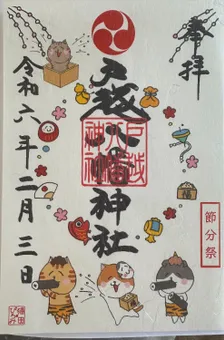 奉拝
戸越八幡神社
戸越八幡神社
令和六年二月三日
節分祭